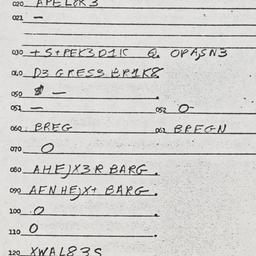 020 APEL8K3
021 —
030 +S+PEK3D1K Q. OPAJSN3
040 D3 GRESS BR1K8
050 $ —
051 — 052 O-
060 BREG 061 BREGN
070 O
080 AHEJX3R BARG.
090 AFNHEJX+ BARG.
100 O.
110 O.
120 XWAL83S